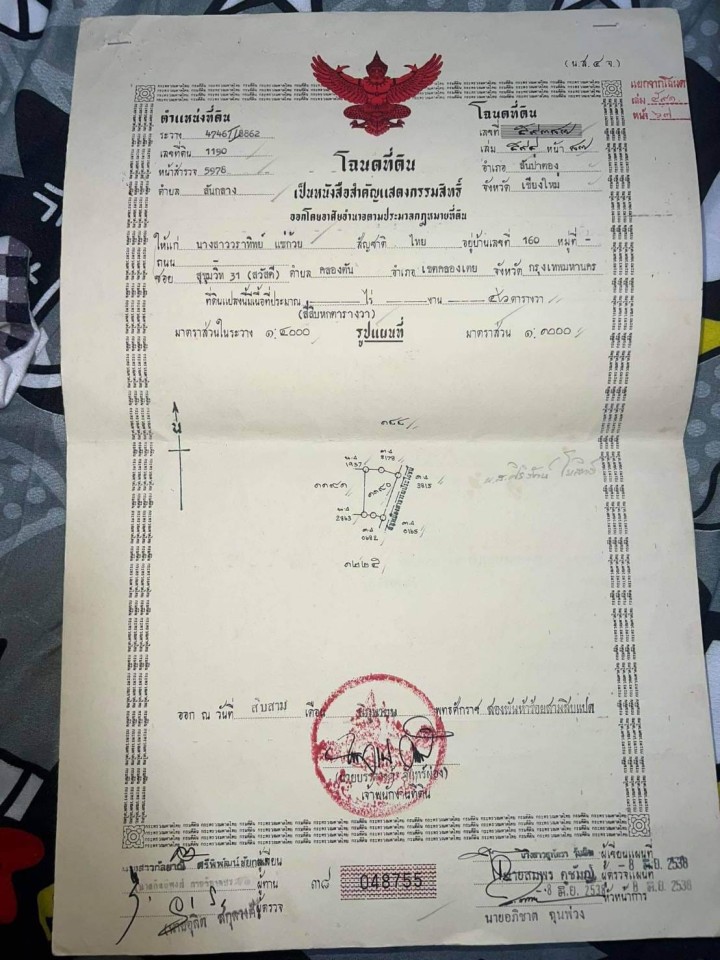 (น.ส. ๔ จ.)
แยกจากโฉนด
เล่ม
หน้า ๖๗
ตำแหน่งที่ดิน
ระวาง 4746 I 8862
เลขที่ดิน 1190
หน้าสำรวจ 5578
ตำบล สันกลาง
โฉนดที่ดิน
เลขที่
เล่ม หน้า
อำเภอ สันป่าตอง
จังหวัด เชียงใหม่
โฉนดที่ดิน
เป็นหนังสือสำคัญแสดงกรรมสิทธิ์
ออกโดยอาศัยอำนาจตามประมวลกฎหมายที่ดิน
ให้แก่ นางสาววราทิพย์ แซ่ก้วย สัญชาติ ไทย อยู่บ้านเลขที่ 160 หมู่ที่ -
ถนน
ซอย สุขุมวิท 31 (สวัสดี) ตำบล คลองตัน อำเภอ เขตคลองเตย จังหวัด กรุงเทพมหานคร
ที่ดินแปลงนี้มีเนื้อที่ประมาณ - ไร่ - งาน ๔๖ ตารางวา
(สี่สิบหกตารางวา)
มาตราส่วนในระวาง ๑: ๔๐๐๐ รูปแผนที่ มาตราส่วน ๑: ๑๐๐๐
น
๑๑๔๔
1957
8178
๑๑๙๑
๑๑๙๐
3815
2863
0692
0165
๑๒๒๕
ออก ณ วันที่ สิบสาม เดือน มิถุนายน พุทธศักราช สองพันห้าร้อยสามสิบแปด
เจ้าพนักงานที่ดิน
ผู้เขียน
ผู้ทาน
ผู้ตรวจ
๓๘ 048755
ผู้เขียนแผนที่
นายสมพร ผู้ตรวจแผนที่ -8 มิ.ย. 2538
-8 มิ.ย. 2538 หัวหน้าการ -8 มิ.ย. 2538
นายอภิชาต ฉุนพ่วง